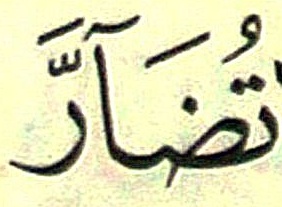 تُضَآرَّ